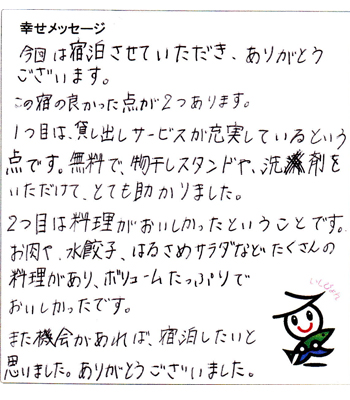 幸せメッセージ
今回は宿泊させていただき、ありがとう
ございます。
この宿の良かった点が2つあります。
1つ目は、貸し出しサービスが充実しているという
点です。無料で、物干しスタンドや、洗剤を
いただけて、とても助かりました。
2つ目は料理がおいしかったということです。
お肉や、水餃子、はるさめサラダなどたくさんの
料理があり、ボリュームたっぷりで
おいしかったです。
また機会があれば、宿泊したいと
思いました。ありがとうございました。